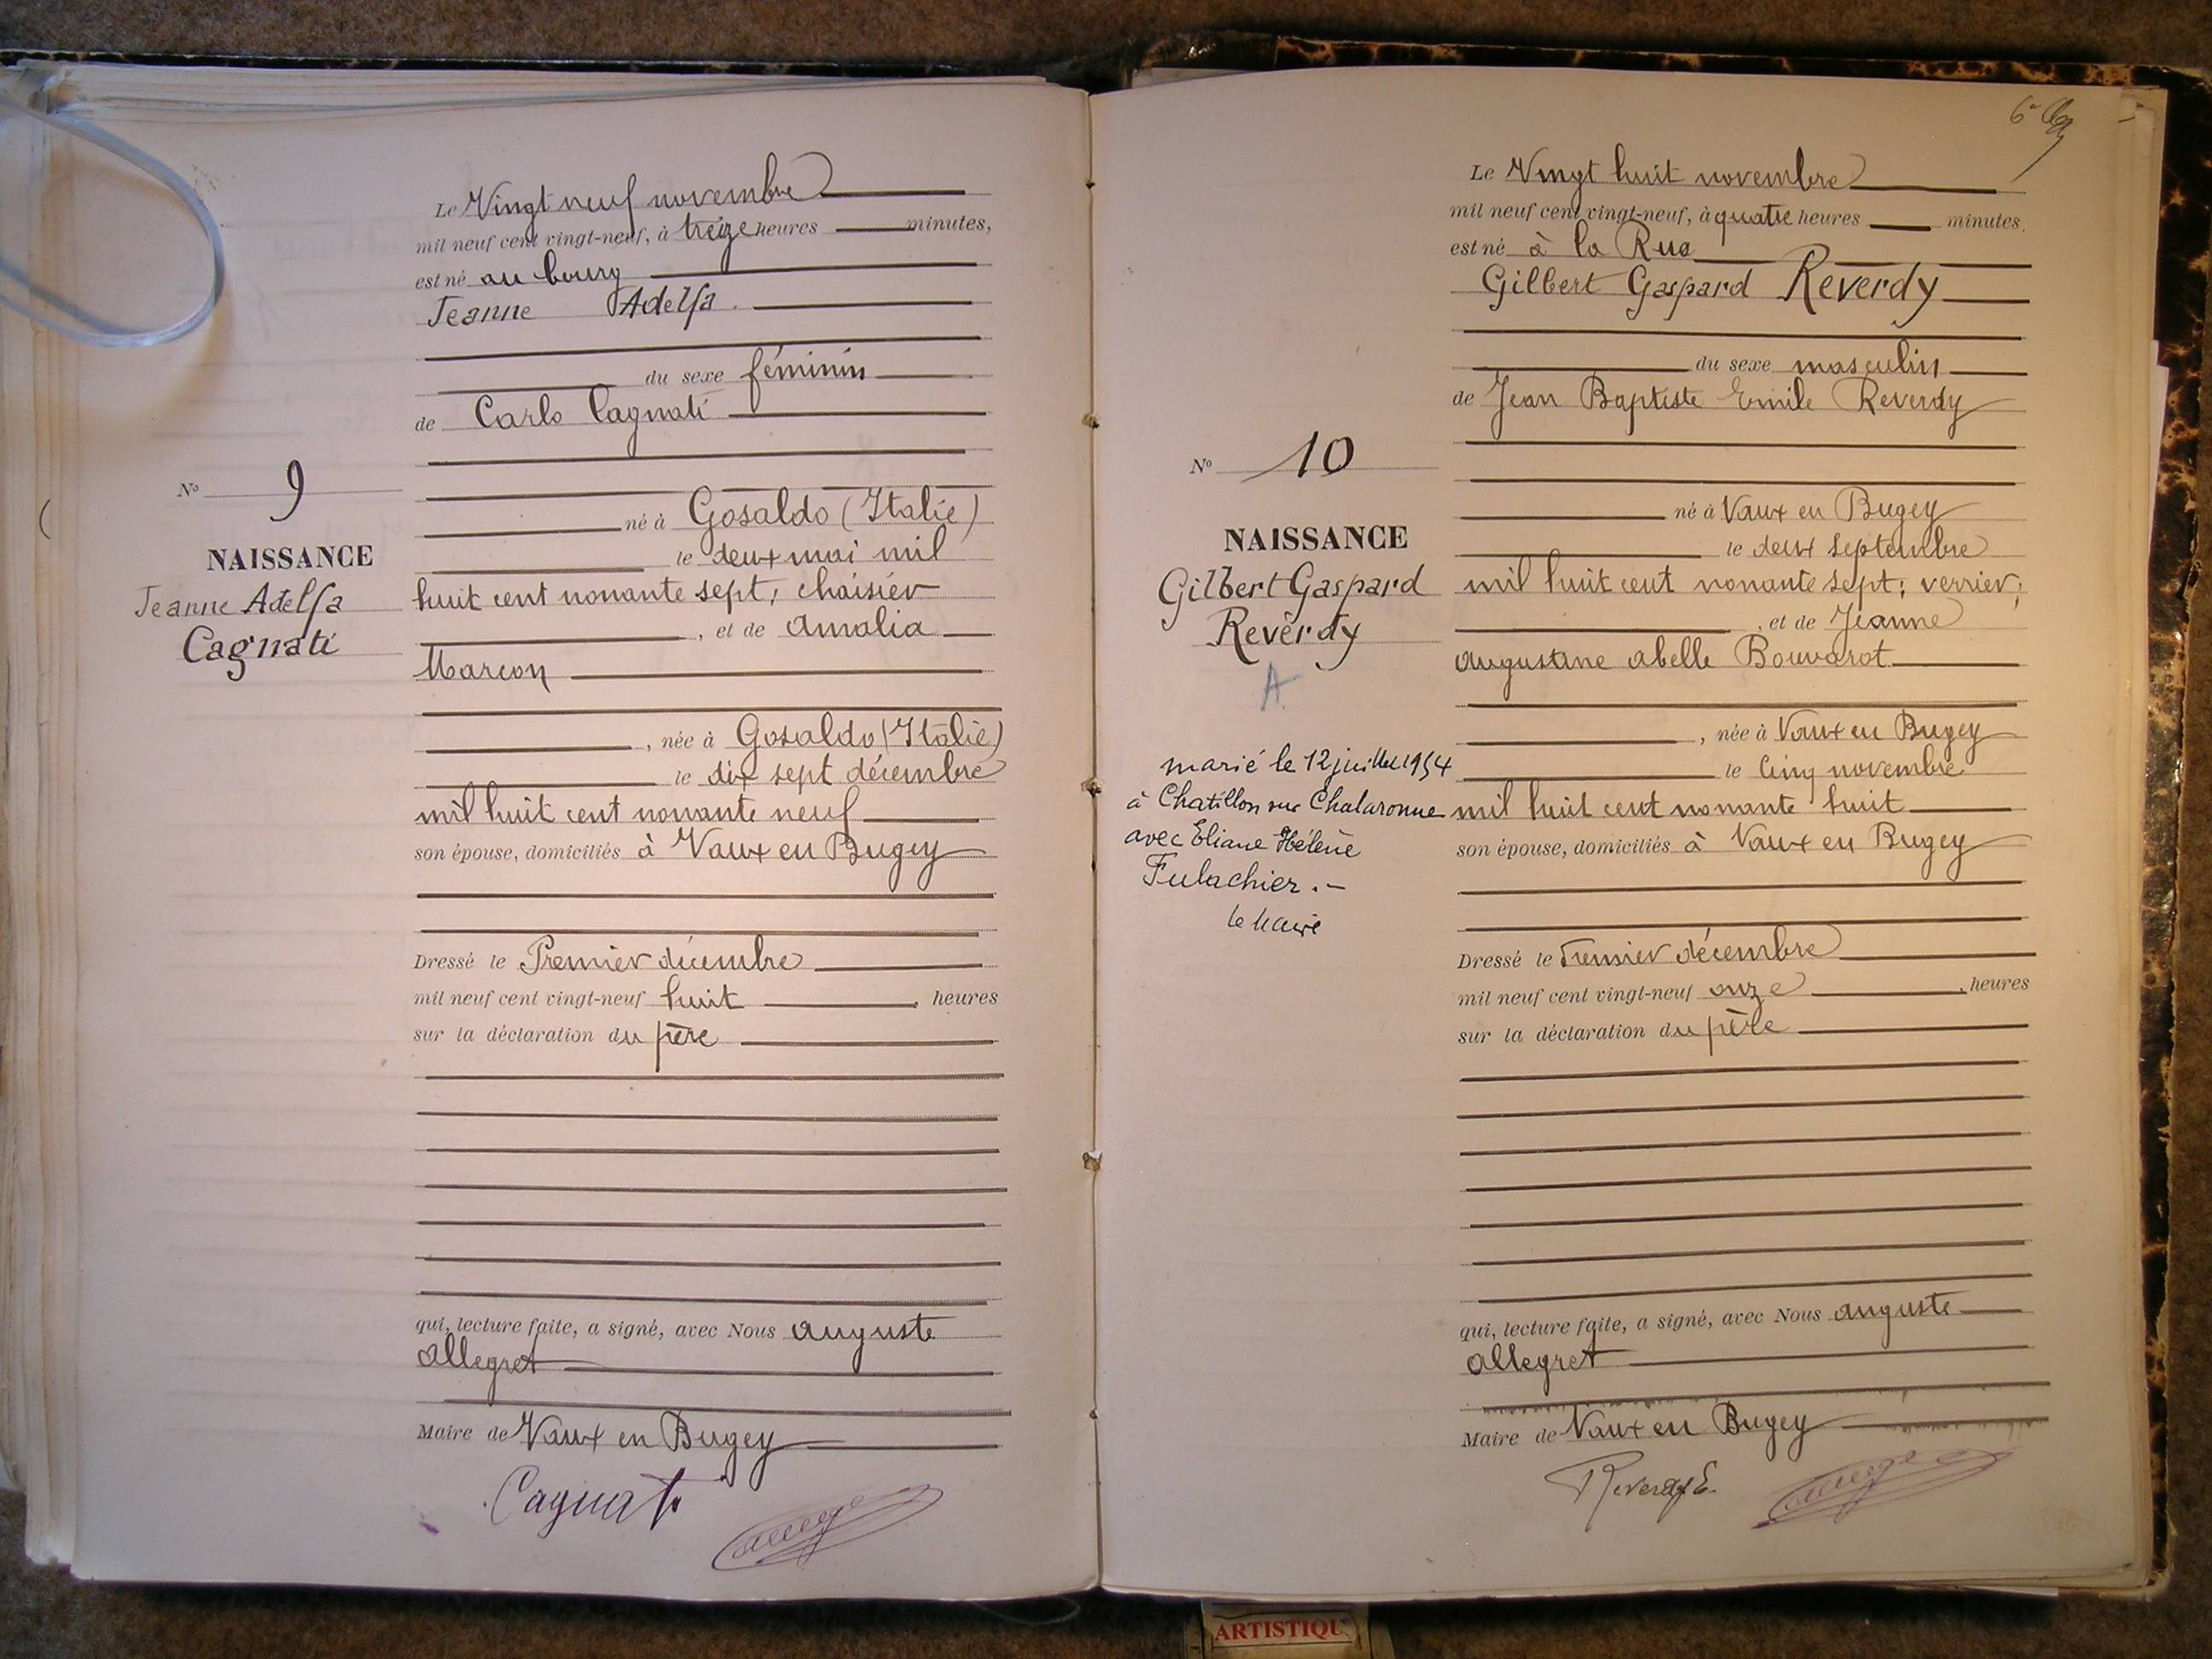 Le Vingt neuf novembre
mil neuf cent vingt-neuf, à treize heures minutes,
est né au bourg
Jeanne Adelfa
du sexe féminin
de Carlo Cagnati
né à Gosaldo (Italie)
le deux mai mil
huit cent nonante sept, chaisier
, et de Amalia
Marcon
, née à Gosaldo (Italie)
le dix sept décembre
mil huit cent nonante neuf
son épouse, domiciliés à Vaux en Bugey
Dressé le Premier décembre
mil neuf cent vingt-neuf huit , heures
sur la déclaration du père
qui, lecture faite, a signé, avec Nous auguste
allegret
Maire de Vaux en Bugey
Cagnati
N° 9
NAISSANCE
Jeanne Adelfa
Cagnati
Le Vingt huit novembre
mil neuf cent vingt-neuf, à quatre heures minutes.
est né à la Rue
Gilbert Gaspard Reverdy
du sexe masculin
de Jean Baptiste Emile Reverdy
né à Vaux en Bugey
le deux septembre
mil huit cent nonante sept; verrier;
, et de Jeanne
augustine abelle Bouvarot
, née à Vaux en Bugey
le Cinq novembre
mil huit cent nonante huit
son épouse, domiciliés à Vaux en Bugey
Dressé le Premier décembre
mil neuf cent vingt-neuf onze , heures
sur la déclaration du père
qui, lecture faite, a signé, avec Nous auguste
allegret
Maire de Vaux en Bugey
Reverdy E.
N° 10
NAISSANCE
Gilbert Gaspard
Reverdy
A
marié le 12 juillet 1954
à Chatillon sur Chalaronne
avec Eliane Hélène
Fulachier.-
le Maire
ARTISTIQU